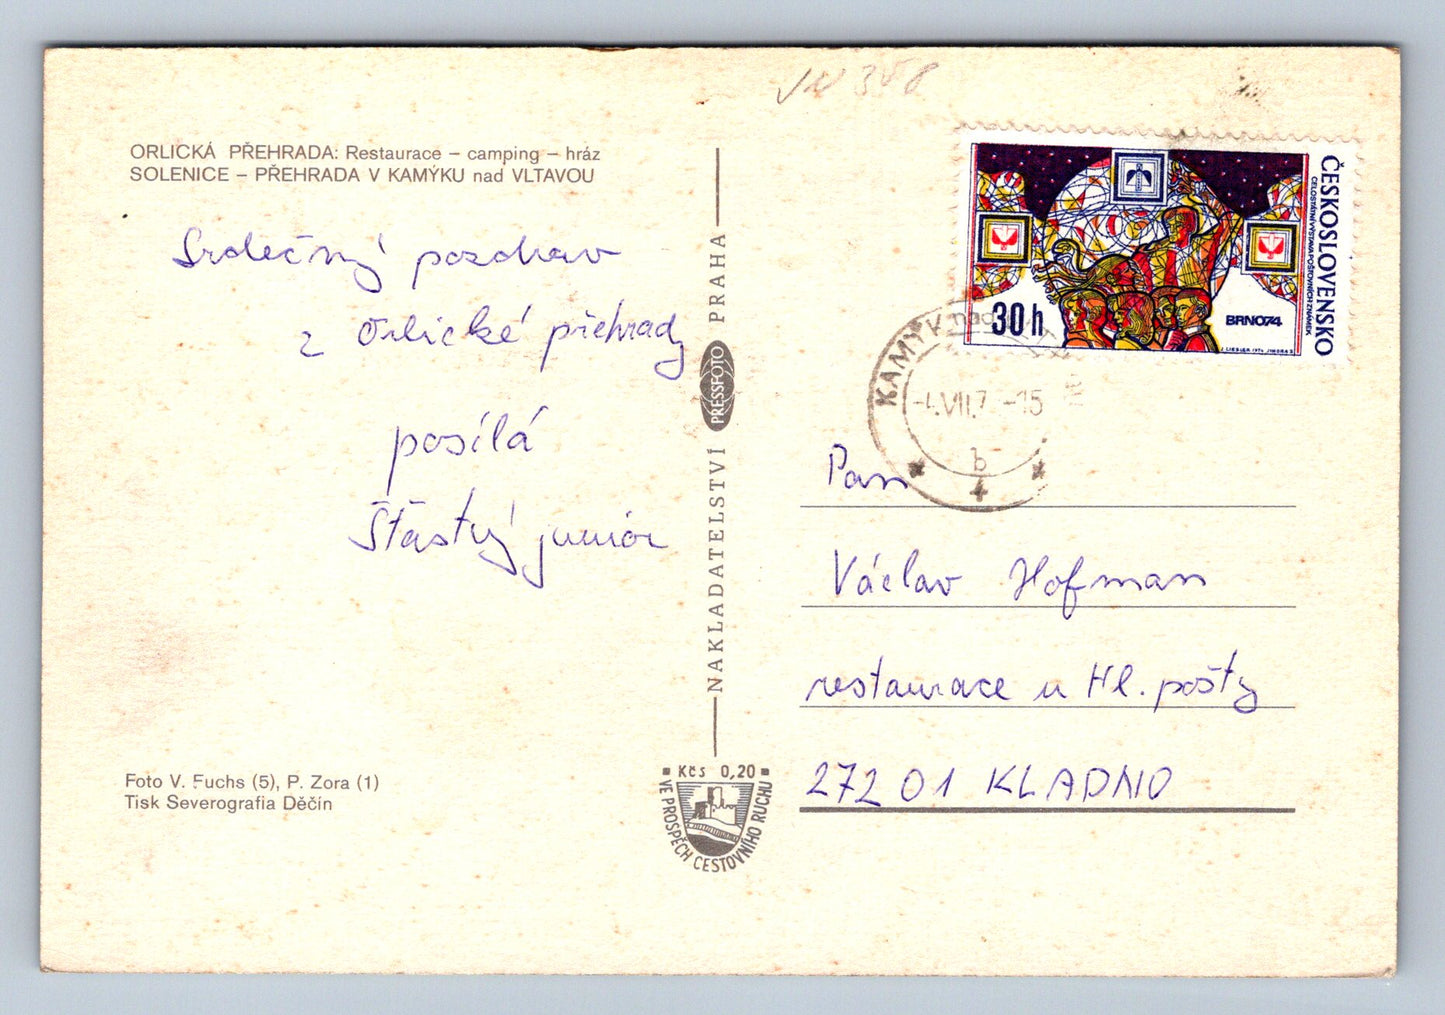 VN 358
ORLICKÁ PŘEHRADA: Restaurace – camping – hráz
SOLENICE – PŘEHRADA V KAMÝKU nad VLTAVOU
Srdečný pozdrav
z Orlické přehrady
posílá
Šťastný junior
Foto V. Fuchs (5), P. Zora (1)
Tisk Severografia Děčín
NAKLADATELSTVÍ PRESSFOTO PRAHA
Kčs 0,20
VE PROSPĚCH CESTOVNÍHO RUCHU
ČESKOSLOVENSKO
CELOSTÁTNÍ VÝSTAVA POŠTOVNÍCH ZNÁMEK
30 h
BRNO 74
J. LIESLER 1974 JINDRA S
KAMÝK nad
-4.VII.7 -15
b
4
Pan
Václav Hofman
restaurace u Hl. pošty
272 01 KLADNO